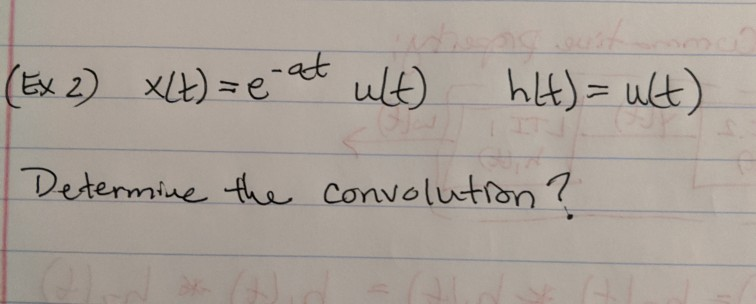 (Ex 2) x(t) = e^{-at} u(t) h(t) = u(t)
Determine the convolution?